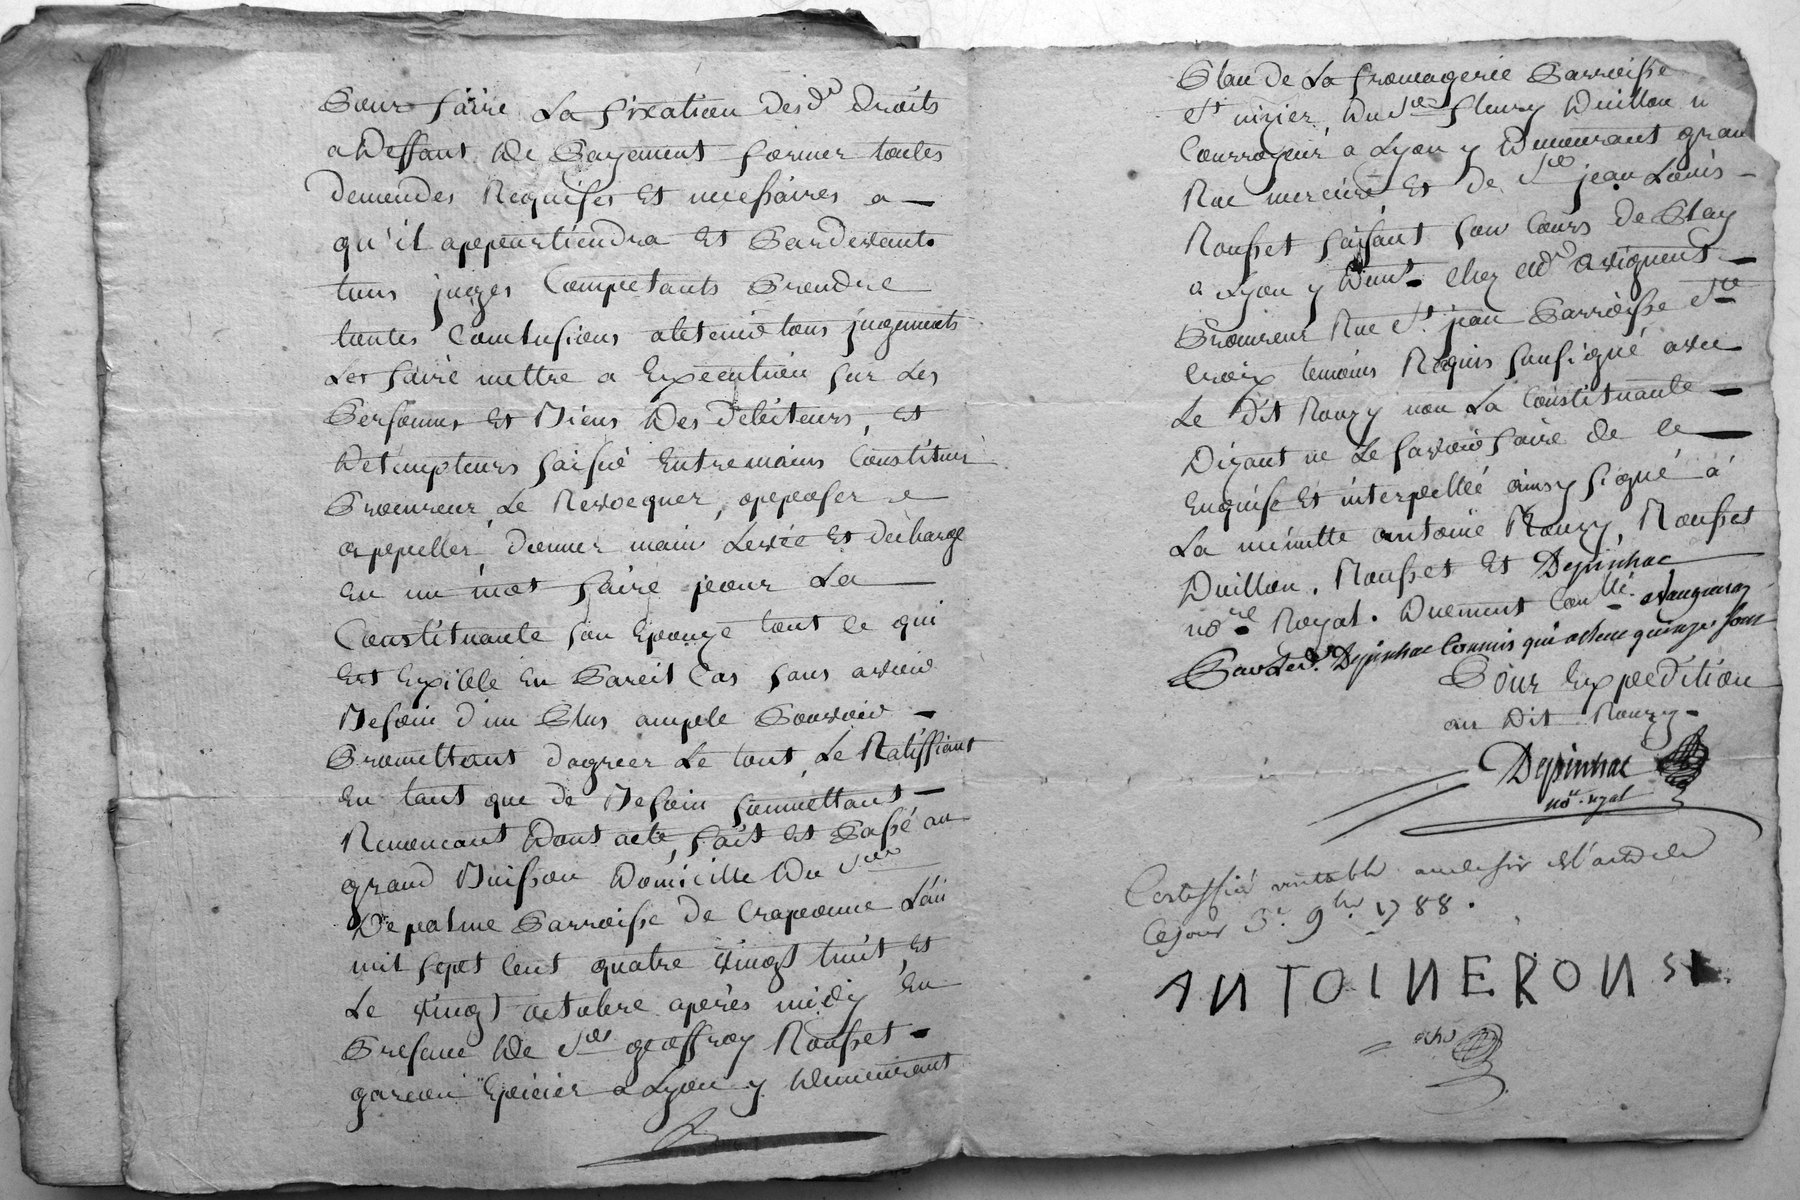 Pour faire La fixation desd.s droits
a Deffaut De Payement former toutes
demendes Requises Et necessaires a
qu'il appartiendra Et Pardevant
tous juges Competants Prendre
toutes Conclusions obtenir tous jugements
Les faire mettre a Execution sur Les
Personnes Et Biens Des debiteurs, Et
Detempteurs saisie Entremains Constituer
Procureur, Le Revocquer, opposer
appeller, donner main Levée Et décharge
En un mot faire pour La
Constituante son Epouze tout ce qui
Est Exibble En Pareil Cas sans avoir
Besoin d'un Plus ample Pouvoir
Promettant d'agreer Le tout, Le Ratiffiant
En tant que de Besoin soumettant
Renoncant Dont acte, fait Et Passé au
grand Buisson Domicille Du Sieur
De palme Parroisse de Craponne L'an
mil sept Cent quatre Vingt huit, Et
Le Vingt octobre après midy En
Presence De Srs geoffroy Rousset
garcon Epicier a Lyon y Demeurant
Place De La fromagerie Parroisse
St nizier, Du Sr fleury Duillon
Courroyeur a Lyon y Demeurant grande
Rue merciere Et de Sr jean Louis
Rousset faisant son Cours de Play
a Lyon y Demt. Chez Md.
Procureur Rue St jean Parroisse Ste
Croix temoins Requis sousigné avec
Le Dit Ronzy non La Constituante
Dizant ne Le savoir faire de ce
Enquise Et interpellée ainsy signé à
La minutte antoine Ronzy, Rousset
Duillon, Rousset Et Depinhac
nore Royal. Duement Conllé. a vaugneray
Par Led.r Depinhac Commis qui a Reçu quinze sous
Pour Expedition
au Dit Ronzy
Depinhac
nore. royal
Certiffié veritable
Ce jour 3e 9bre 1788.
ANTOINE RONSI